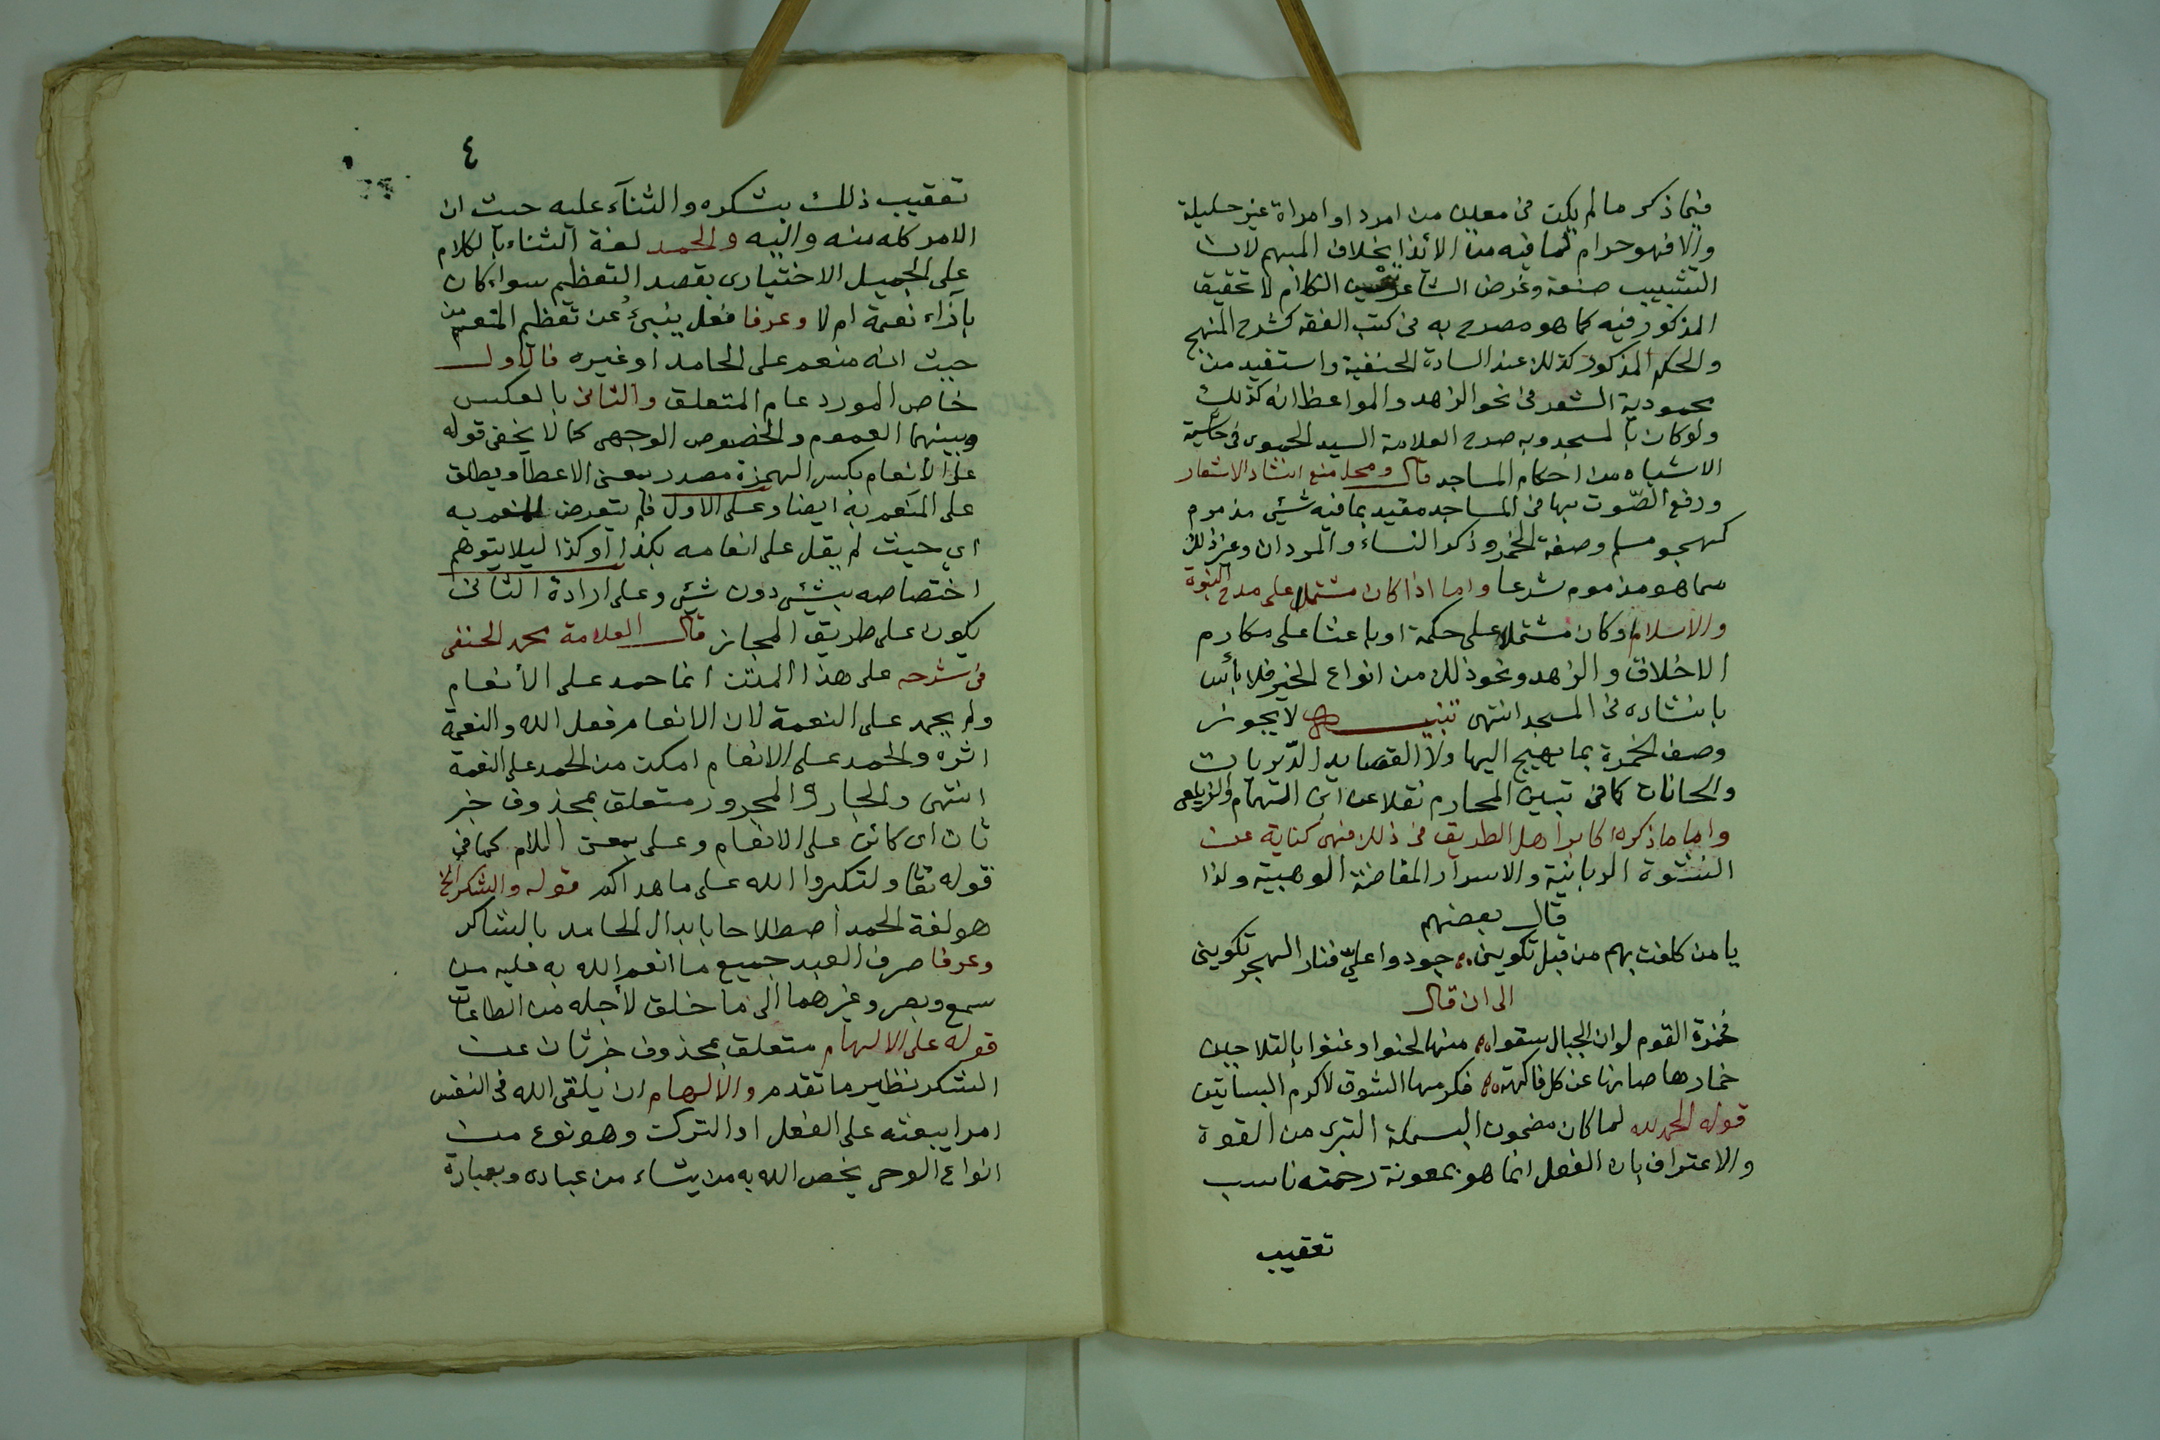 فيما ذكر ما لم يكن في معين من امرد او امراة غير حليلة
والا فهو حرام لما فيه من الأيذا بخلاف المبهم لان
التشبيب صنعة وغرض الشاعر تحسين الكلام لا تحقيق
المذكور فيه كما هو مصرح به في كتب الفقه كشرح المنهج
والحكم المذكور كذلك عند السادة الحنفية واستفيد من
محمودية الشعر في نحو الزهد والمواعظ انه كذلك
ولو كان بالمسجد وبه صرح العلامة السيد الحموى في حاشية
الاشباه من احكام المساجد قال ومحل منع انشاد الاشعار
ورفع الصّوت بها في المساجد مقيد بما فيه شيء مذموم
كهجو مسلم وصفة الخمر وذكر النساء والمردان وغير ذلك
مما هو مذموم شرعا واما اذا كان مشتملا على مدح النبوة
والاسلام او كان مشتملا على حكمة او باعثا على مكارم
الاخلاق والزهد ونحو ذلك من انواع الخير فلا بأس
بانشاده في المسجد انتهى تنبيه لا يجوز
وصف الخمرة بما يهيج اليها ولا القصايد الدّيريات
والحانات كما في تبيين المحارم نقلا عن ابن الهمام والزيلعي
واما ما ذكره اكابر اهل الطريق في ذلك فهى كناية عن
النشوة الربانية والاسرار المفاضة الوهبية ولذا
قال بعضهم
يا من كلفت بهم من قبل تكويني جودوا عليّ فنار الهجر تكويني
الى ان قال
فخمرة القوم لو ان الجبال سقوا منها لحنوا وغنوا بالتلاحين
خمارها صانها عن كل فاكهة فكرمها الشوق لا كرم البساتين
قوله الحمد لله لما كان مضمون البسملة التبرى من القوة
والاعتراف بان الفعل انما هو بمعونة رحمته ناسب
تعقيب
٤
تعقيب ذلك بشكره والثنآء عليه حيث ان
الامر كله منه واليه والحمد لغة الثناء بالكلام
على الجميل الاختيارى بقصد التعظيم سواء كان
بآزاء نعمة ام لا وعرفا فعل ينبئُ عن تعظيم المنعم من
حيث انه منعم على الحامد او غيره فالاول
خاص المورد عام المتعلق والثاني بالعكس
وبينهما العموم والخصوص الوجهى كما لا يخفى قوله
على الأنعام بكسر الهمزة مصدر بمعنى الاعطا ويطلق
على المنعم به ايضا وعلى الاول فلم يتعرض للمنعم به
اي حيث لم يقل على انعامه بكذا او كذا ليلا يتوهم
اختصاصه بشئ دون شئ وعلى ارادة الثاني
يكون على طريق المجاز قال العلامة محمد الحنفى
في شرحه على هذا المتن انما حمد على الأنعام
ولم يحمد على النعمة لان الانعام فعل الله والنعمة
اثره والحمد على الانعام امكن من الحمد على النعمة
انتهى والجار والمجرور متعلق بمحذوف خبر
ثان اى كائن على الانعام وعلى بمعنى اللام كما في
قوله تعا ولتكبروا الله على ما هداكم قوله والشكر الخ
هو لغة الحمد اصطلاحا بابدال الحامد بالشاكر
وعرفا صرف العبد جميع ما انعم الله به عليه من
سمع وبصر وغيرهما الى ما خلق لأجله من الطاعات
قوله على الالهام متعلق بمحذوف خبر ثان عن
الشكر نظير ما تقدم والالهام ان يلقى الله في النفس
امرا يبعثه على الفعل او الترك وهو نوع من
انواع الوحى يخص الله به من يشاء من عباده وبعبارة